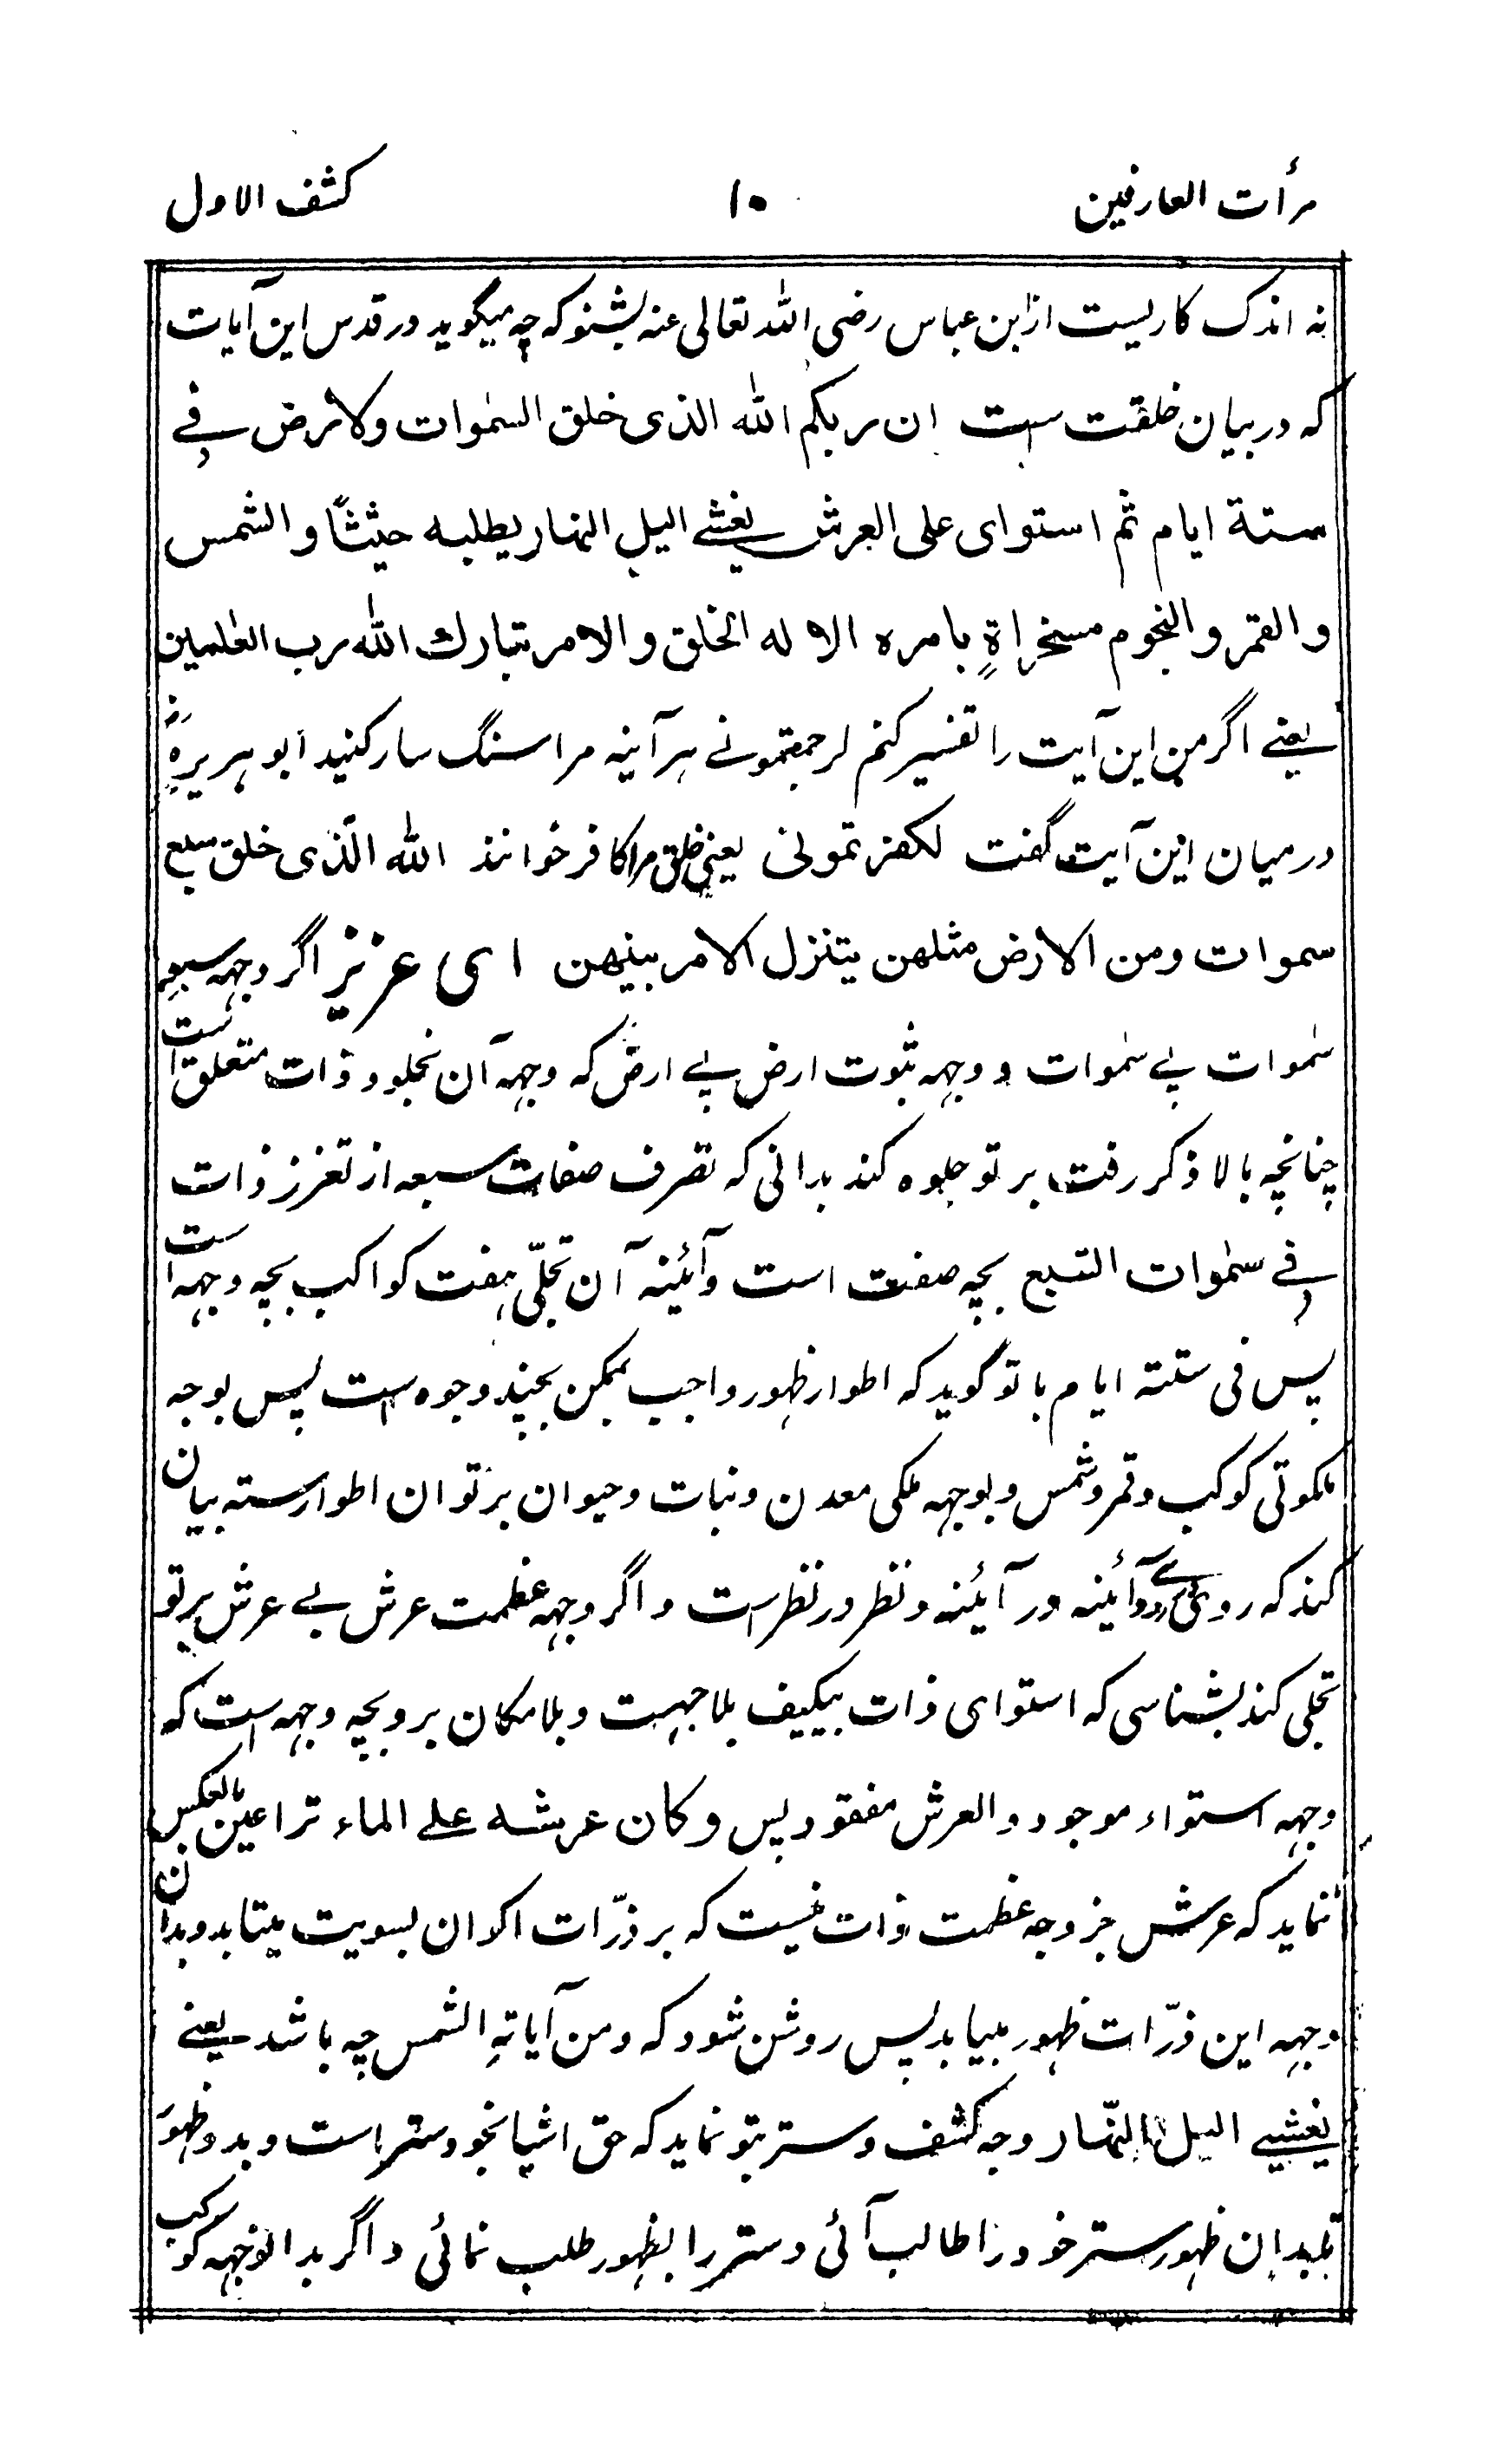 مرأت العارفین ۱۰ کشف الاول
نہ اندک کاریست از ابن عباس رضی اللہ تعالی عنہ بشنو کہ چہ میگوید در قدس این آیات
کہ در بیان خلقت ست ان ربکم اللہ الذی خلق السمٰوات والارض فے
ستة ایام ثم استوای علی العرش یغشے الیل النہار یطلبہ حثیثاً و الشمس
و القمر و النجوم مسخراةٍ بامرہ الا لہ الخلق و الامر تبارک اللہ رب العٰلمین
یعنے اگر من این آیت را تفسیر کنم لرجمتمونے ہر آینہ مرا سنگ سار کنید ابو ہریرہؓ
درمیان این آیت گفت لکفرتمونی یعنی خلق مرا کافر خوانند اللہ الّذی خلق سبع
سموات ومن الارض مثلہن یتنزل الامر بینہن ای عزیز اگر وجہہ سبعہ
سمٰوات بے سمٰوات و وجہہ ثبوت ارض بے ارض کہ وجہہ آن بخلود ذات متعلق است
چنانچہ بالا ذکر رفت بر تو جلوہ کند بدانی کہ تصرف صفات سبعہ از تعزز ذات
فے سمٰوات السّبع بچہ صفت است و آئینہ آن تجلّی ہفت کواکب بچہ وجہہ است
پس فی ستتہ ایام با تو گوید کہ اطوار ظہور واجب بممکن بچند وجوہ است پس بوجہ
ملکوتی کوکب و قمر و شمس و بوجہہ ملکی معدن و نبات و حیوان بر تو ان اطوار ستہ بیان
کند کہ روئے در آئینہ و آئینہ و نظر در نظر است و اگر وجہہ عظمت عرش بے عرش بر تو
تجلی کند بشناسی کہ استوای ذات بیکیف بلا جہت و بلا مکان برو بچہ وجہہ است کہ
وجہہ استواء موجود و العرش مفقود پس و کان عرشہ علے الماء ترا عین بالعکس
نماید کہ عرش جز وجہ عظمت ذات نیست کہ بر ذرّات اکوان بسویت میتابد و بدان
وجہہ این ذرّات ظہور مییابد پس روشن شود کہ ومن آیاتہِ الشمس چہ باشد یعنے
یغشیے الیل النّہار وجہ کشف و ستر بتو نماید کہ حق اشیا بخود ستر است و بدو ظہور
تا بدان ظہور ستر خود را طالب آئی و ستر را بظہور طلب نمائی و اگر بدانوجہہ کوکب